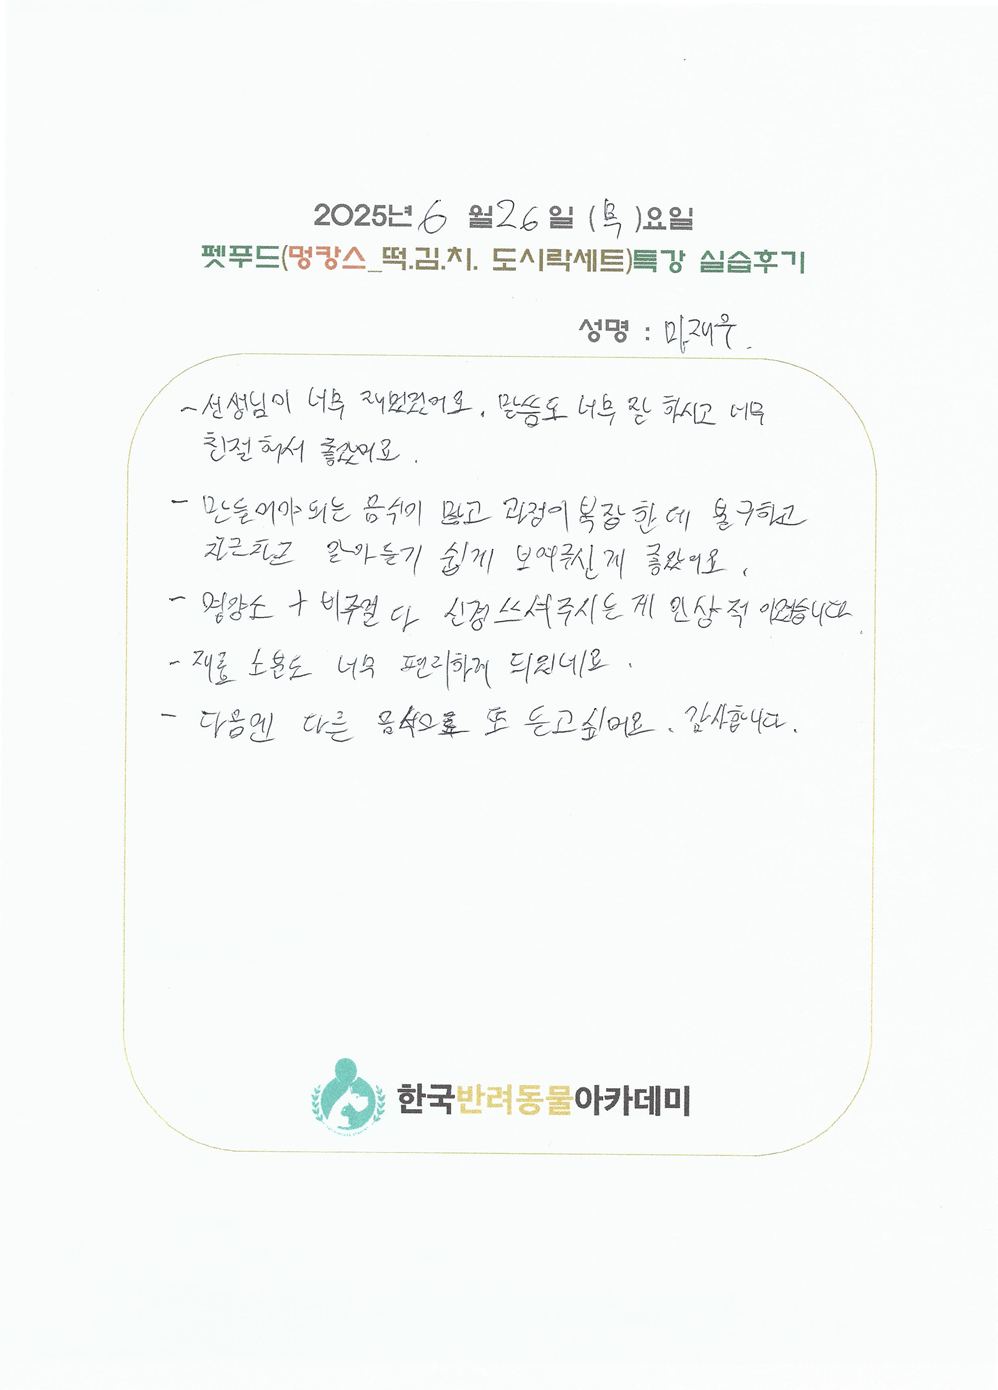 2025년 6 월 26 일 (목)요일
펫푸드(멍캉스_떡.김.치. 도시락세트)특강 실습후기
성명 :
- 선생님이 너무 재밌었어요. 말씀도 너무 잘 하시고 너무
친절해서 좋았어요.
- 만들어야되는 음식이 많고 과정이 복잡한데 불구하고
차근차근 알아듣기 쉽게 보여주신게 좋았어요.
- 영양소 + 비주얼 다 신경쓰셔주시는 게 인상적이었습니다.
- 재료 소분도 너무 편리하게 되있네요.
- 다음엔 다른 음식으로 또 듣고싶어요. 감사합니다.
한국반려동물아카데미